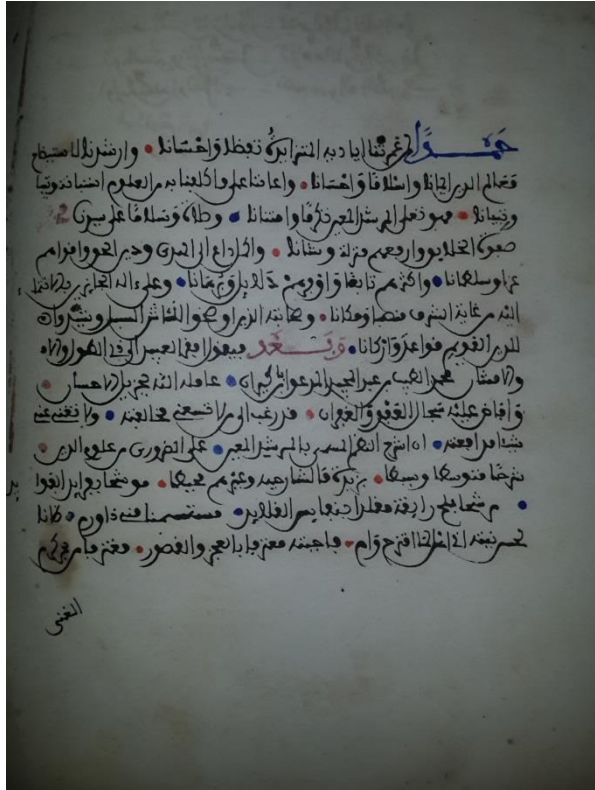 حمدا لمن غمرتنا اياديه المتزايدة تفضلا واحسانا • وارشدنا لاستيضاح
معالم الدين ايمانا واسلاما واحسانا • واعاننا على ما كلفنا به من العلوم استبانة وتبيا
وتبيانا • فهو تعلى المرشد المعين تكرما وامتنانا • وصلاة وسلاما على سيدنا
صفوة الخلايق وارفعهم منزلة وشانا • واكمل داع الى الهدى ودين الحق واقواهم
عزا وسلطانا • واكثرهم تابعا واقومهم دلايل وبرهانا • وعلى اله الحائزين بالانتما
اليه من غاية الشرف منصبا ومكانا • وصحابته الذين اوضحوا للناس السبيل وشيدوا
للدين القويم قواعد واركانا • وبعد فيقول افقر العبيد الى ذي الطول والا
والامتنان محمد الطيب بن عبد المجيد المدعو ابن كيران • عامله الله بجزيل الاحسان •
وافاض عليه سجال العفو والغفران • قد رغب الي من لا تسعني مخالفته • ولا تغني عني
شيئا مدافعته • ان اشرح النظم المسمى بالمرشد المعين • على الضروري من علوم الدين •
شرحا متوسطا وبسيطا • بزبدة ما لشارحيه وغيرهم محيطا • موشحا بفوايد
• مرشحا بملح رايقة مقلدا بنفايس القلايد • مستسمنا مني ذا ورم • ظانا
لحسن نيته اني اهل لما اقترح ورام • فاجبته معترفا بالعجز والقصور • مغترفا من بحر كرم
الغني